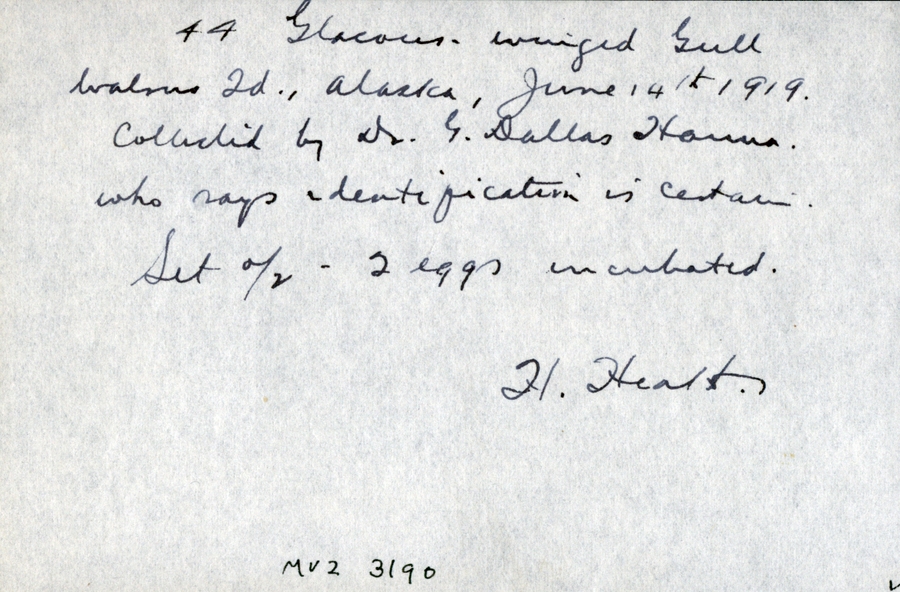 44 Glacous-winged Gull
Walrus Id., Alaska, June 14th 1919.
Collected by Dr. G. Dallas Hanna.
who says identification is certain.
Set o/2 - 2 eggs incubated.
H. Heath.
MVZ 3190